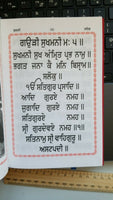 ਗਉੜੀ ਸੁਖਮਨੀ ਮਃ ੫ ॥
ਸੁਖਮਨੀ ਸੁਖ ਅੰਮ੍ਰਿਤ ਪ੍ਰਭ ਨਾਮੁ ॥
ਭਗਤ ਜਨਾ ਕੈ ਮਨਿ ਬਿਸ੍ਰਾਮ ॥
ਸਲੋਕੁ ॥
ੴ ਸਤਿਗੁਰ ਪ੍ਰਸਾਦਿ ॥
ਆਦਿ ਗੁਰਏ ਨਮਹ ॥
ਜੁਗਾਦਿ ਗੁਰਏ ਨਮਹ ॥
ਸਤਿਗੁਰਏ ਨਮਹ ॥
ਸ੍ਰੀ ਗੁਰਦੇਵਏ ਨਮਹ ॥੧॥
ਸਤਿਨਾਮੁ ਸ੍ਰੀ ਵਾਹਿਗੁਰੂ ॥
ਅਸਟਪਦੀ ॥